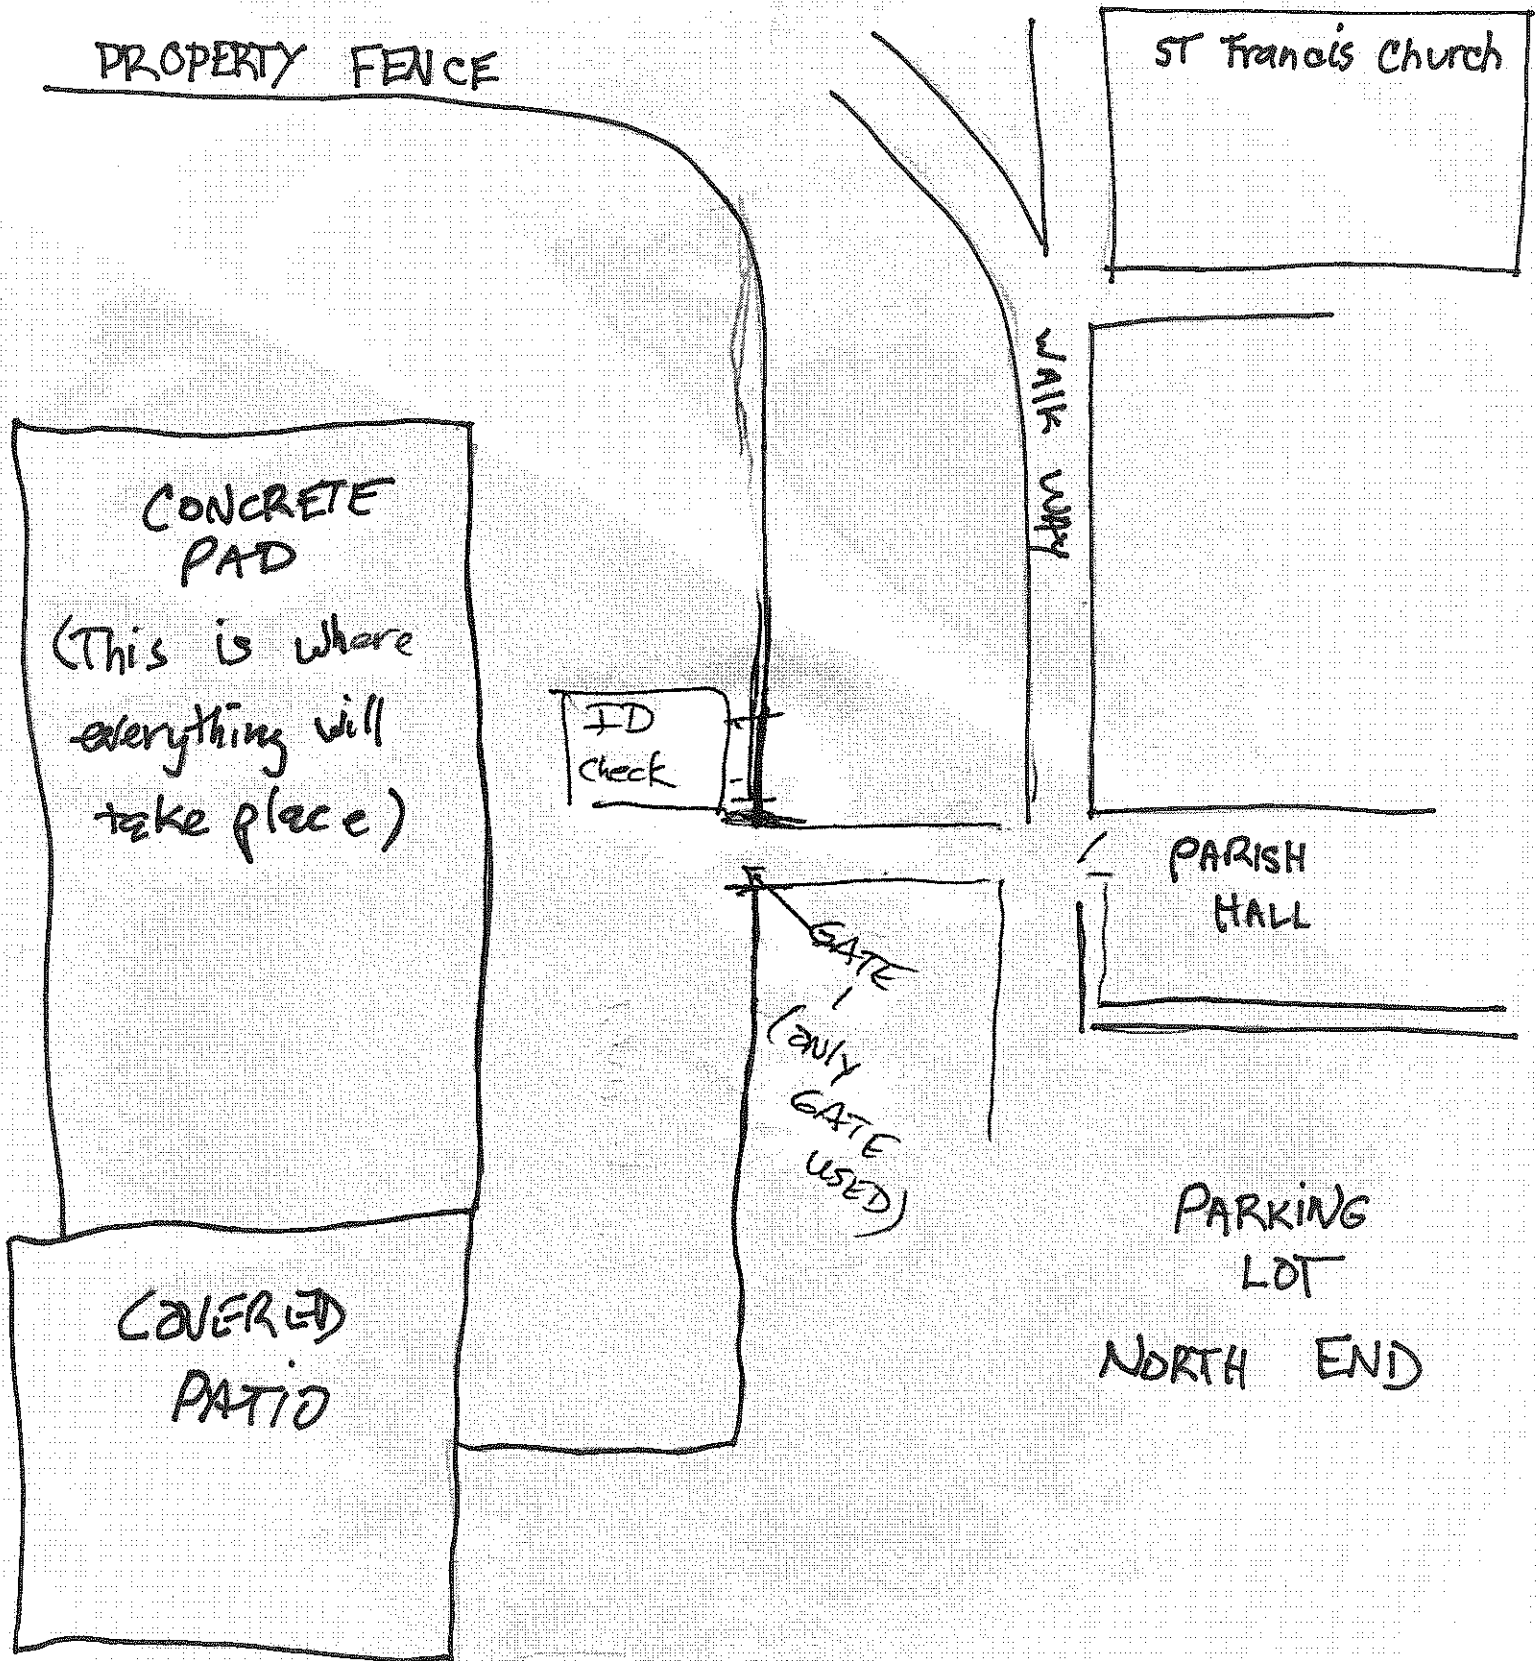 PROPERTY FENCE
ST Francis Church
WALK WAY
CONCRETE
PAD
(This is where
everything will
take place)
ID
Check
PARISH
HALL
GATE
(ONLY
GATE
USED)
PARKING
LOT
NORTH END
COVERED
PATIO